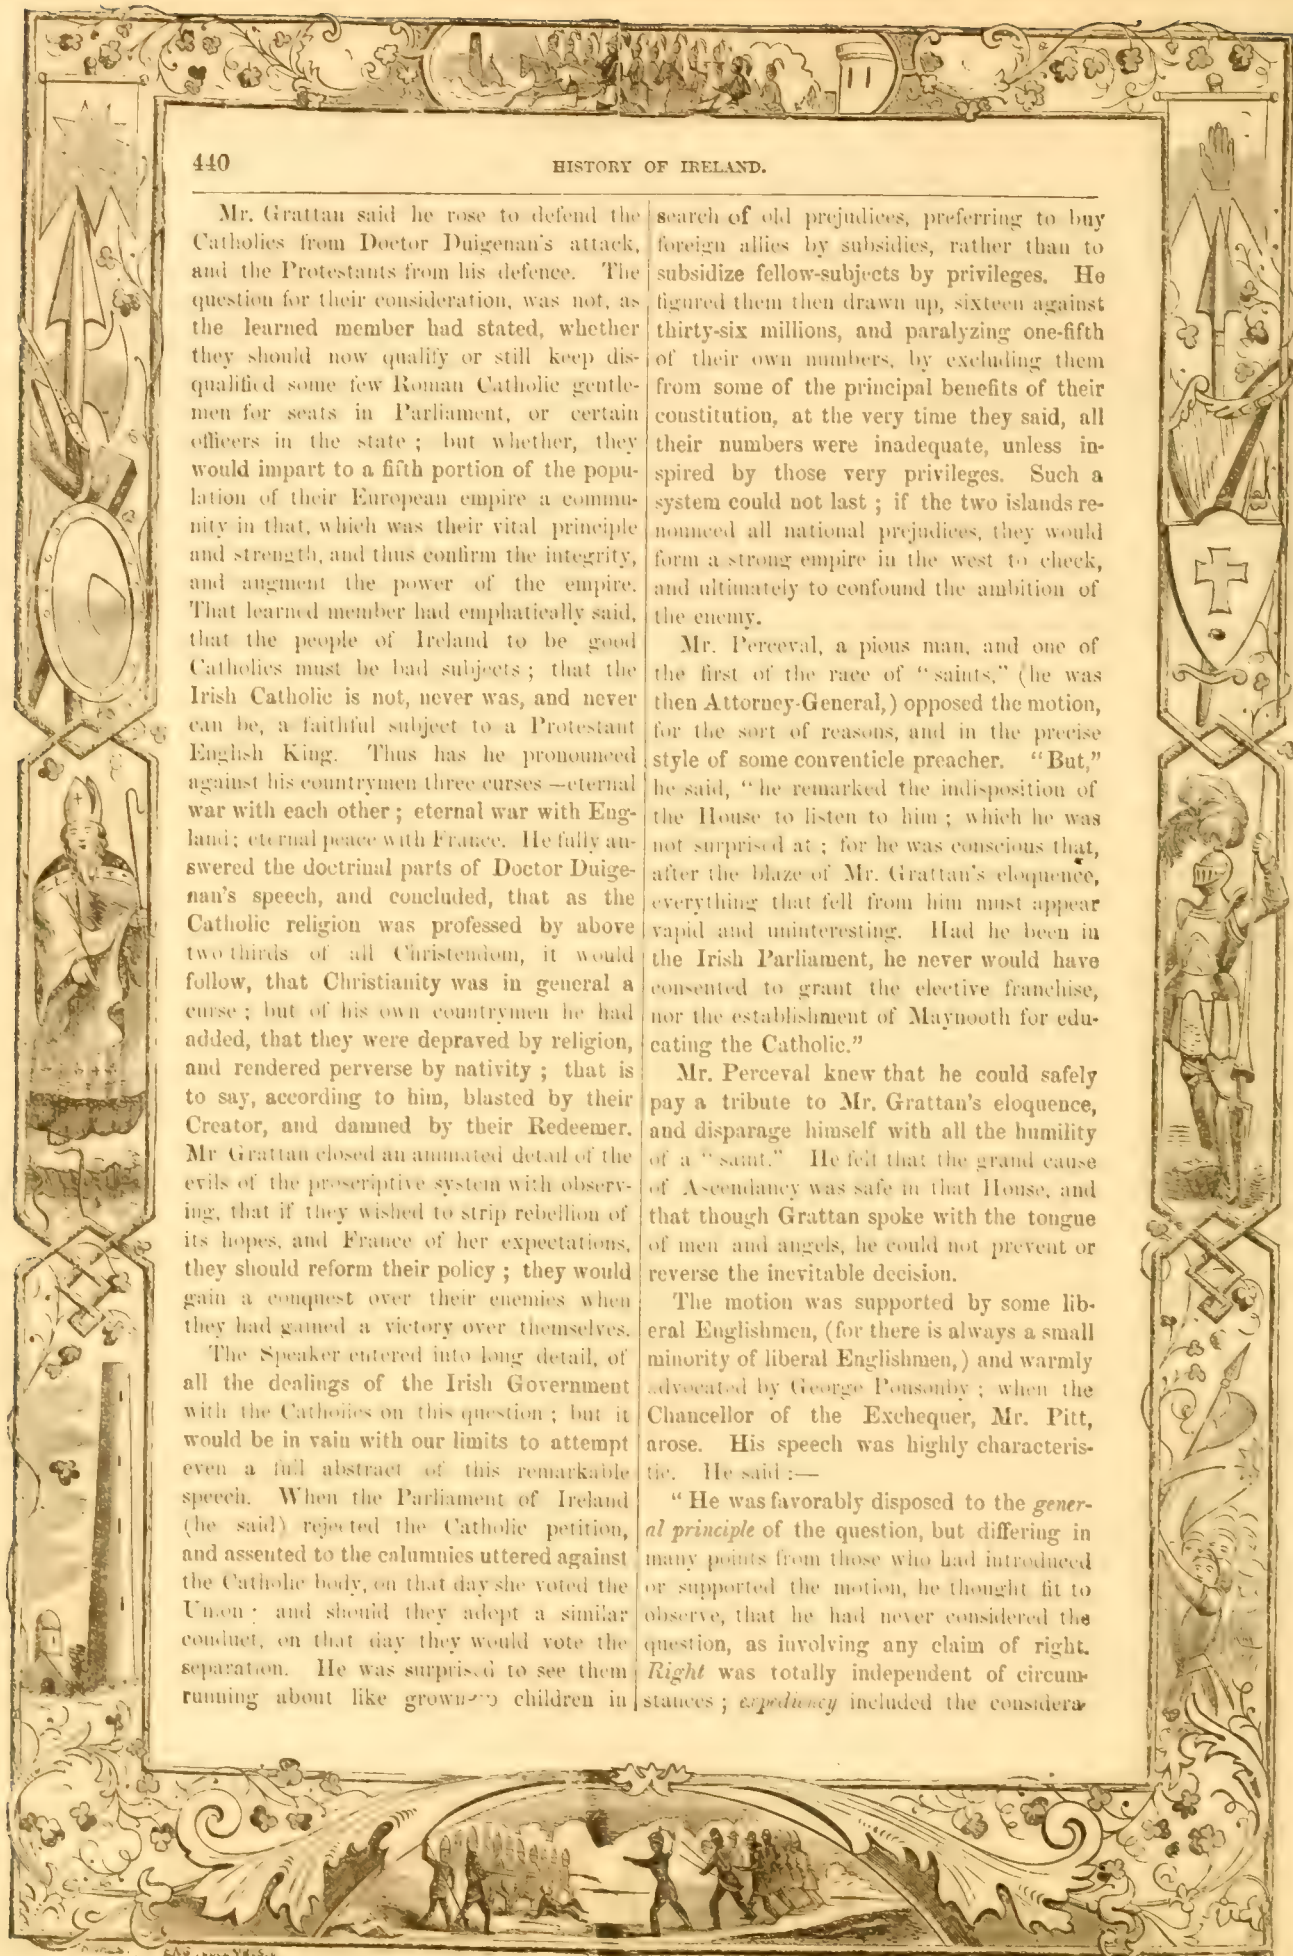 440
HISTORY OF IRELAND.
Mr. Grattan said he rose to defend the
Catholics from Doctor Duigenan's attack,
and the Protestants from his defence. The
question for their consideration, was not, as
the learned member had stated, whether
they should now qualify or still keep dis-
qualified some few Roman Catholic gentle-
men for seats in Parliament, or certain
officers in the state ; but whether, they
would impart to a fifth portion of the popu-
lation of their European empire a commu-
nity in that, which was their vital principle
and strength, and thus confirm the integrity,
and augment the power of the empire.
That learned member had emphatically said,
that the people of Ireland to be good
Catholics must be bad subjects ; that the
Irish Catholic is not, never was, and never
can be, a faithful subject to a Protestant
English King. Thus has he pronounced
against his countrymen three curses—eternal
war with each other ; eternal war with Eng-
land ; eternal peace with France. He fully an-
swered the doctrinal parts of Doctor Duige-
nan's speech, and concluded, that as the
Catholic religion was professed by above
two thirds of all Christendom, it would
follow, that Christianity was in general a
curse ; but of his own countrymen he had
added, that they were depraved by religion,
and rendered perverse by nativity ; that is
to say, according to him, blasted by their
Creator, and damned by their Redeemer.
Mr Grattan closed an animated detail of the
evils of the proscriptive system with observ-
ing, that if they wished to strip rebellion of
its hopes, and France of her expectations,
they should reform their policy ; they would
gain a conquest over their enemies when
they had gained a victory over themselves.
The Speaker entered into long detail, of
all the dealings of the Irish Government
with the Catholics on this question ; but it
would be in vain with our limits to attempt
even a full abstract of this remarkable
speech. When the Parliament of Ireland
(he said) rejected the Catholic petition,
and assented to the calumnies uttered against
the Catholic body, on that day she voted the
Union ; and should they adopt a similar
conduct, on that day they would vote the
separation. He was surprised to see them
running about like grown-up children in
search of old prejudices, preferring to buy
foreign allies by subsidies, rather than to
subsidize fellow-subjects by privileges. He
figured them then drawn up, sixteen against
thirty-six millions, and paralyzing one-fifth
of their own numbers, by excluding them
from some of the principal benefits of their
constitution, at the very time they said, all
their numbers were inadequate, unless in-
spired by those very privileges. Such a
system could not last ; if the two islands re-
nounced all national prejudices, they would
form a strong empire in the west to check,
and ultimately to confound the ambition of
the enemy.
Mr. Perceval, a pious man, and one of
the first of the race of "saints," (he was
then Attorney-General,) opposed the motion,
for the sort of reasons, and in the precise
style of some conventicle preacher. "But,"
he said, "he remarked the indisposition of
the House to listen to him ; which he was
not surprised at ; for he was conscious that,
after the blaze of Mr. Grattan's eloquence,
everything that fell from him must appear
vapid and uninteresting. Had he been in
the Irish Parliament, he never would have
consented to grant the elective franchise,
nor the establishment of Maynooth for edu-
cating the Catholic."
Mr. Perceval knew that he could safely
pay a tribute to Mr. Grattan's eloquence,
and disparage himself with all the humility
of a "saint." He felt that the grand cause
of Ascendancy was safe in that House, and
that though Grattan spoke with the tongue
of men and angels, he could not prevent or
reverse the inevitable decision.
The motion was supported by some lib-
eral Englishmen, (for there is always a small
minority of liberal Englishmen,) and warmly
advocated by George Ponsonby ; when the
Chancellor of the Exchequer, Mr. Pitt,
arose. His speech was highly characteris-
tic. He said :—
"He was favorably disposed to the gener-
al principle of the question, but differing in
many points from those who had introduced
or supported the motion, he thought fit to
observe, that he had never considered the
question, as involving any claim of right.
Right was totally independent of circum-
stances ; expediency included the considera-